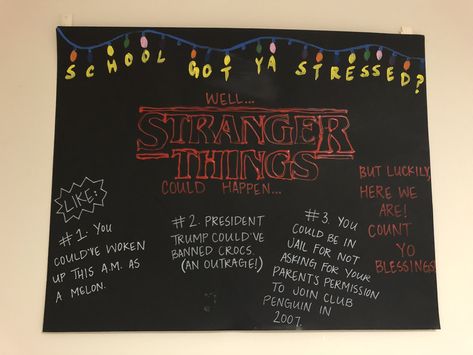 SCHOOL GOT YA STRESSED?
WELL...
STRANGER
THINGS
COULD HAPPEN...
LIKE:
#1: YOU
COULD'VE WOKEN
UP THIS A.M. AS
A MELON.
#2: PRESIDENT
TRUMP COULD'VE
BANNED CROCS.
(AN OUTRAGE!)
#3. YOU
COULD BE IN
JAIL FOR NOT
ASKING FOR YOUR
PARENT'S PERMISSION
TO JOIN CLUB
PENGUIN IN
2007.
BUT LUCKILY,
HERE WE
ARE!
COUNT
YO
BLESSINGS